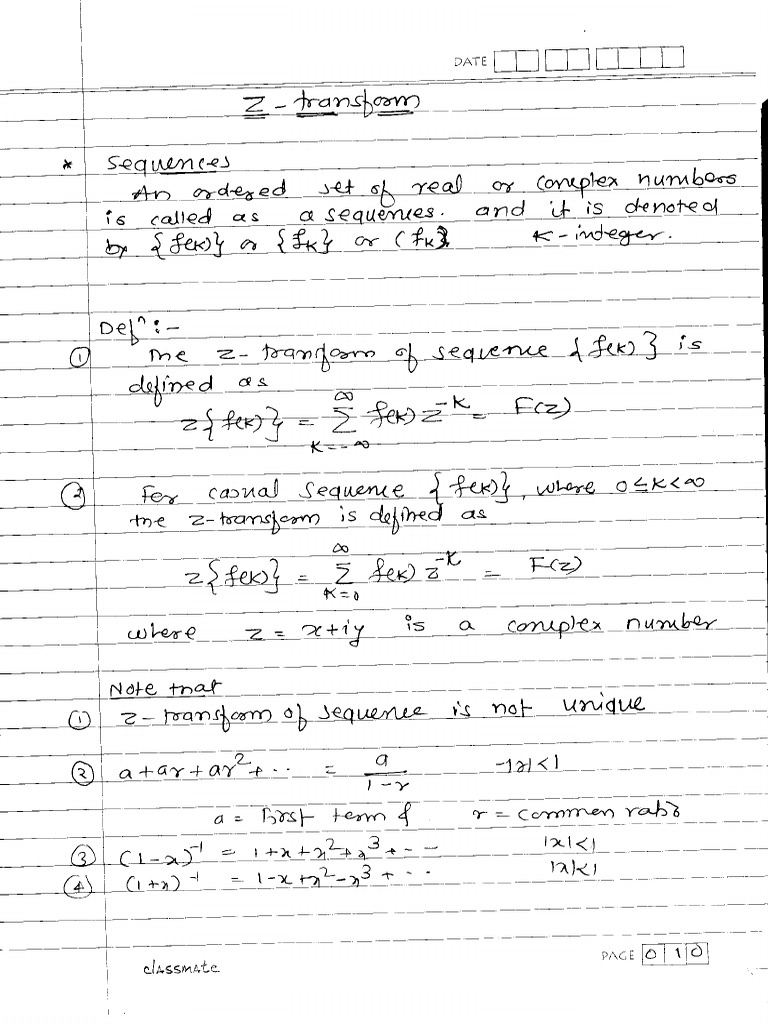 DATE
Z - transform
* Sequences
An ordered set of real or complex numbers
is called as a sequenes. and it is denoted
by {f(k)} or {fk} or (fk} K - integer.
Defn :-
① The z - tranform of sequence {f(k)} is
defined as
z{f(k)} = ∞ Σ K=-∞ f(k) z^-k = F(z)
② For casual sequence {f(k)}, where 0≤K<∞
the z-transform is defined as
z{f(k)} = ∞ Σ K=0 f(k) z^-k = F(z)
where z = x+iy is a complex number
Note that
① z - transform of sequence is not unique
② a+ar+ar²+.. = a/(1-r) -|r|<1
a = first term & r = common ratio
③ (1-x)^-1 = 1+x+x²+x³+-- |x|<1
④ (1+x)^-1 = 1-x+x²-x³+.. |x|<1
classmate PAGE 010